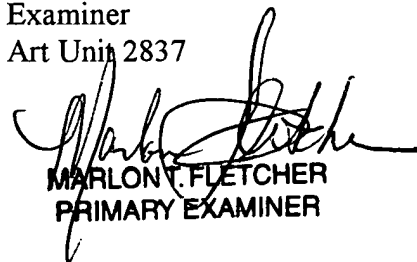 Examiner
Art Unit 2837
Marlon Fletcher
MARLON T. FLETCHER
PRIMARY EXAMINER